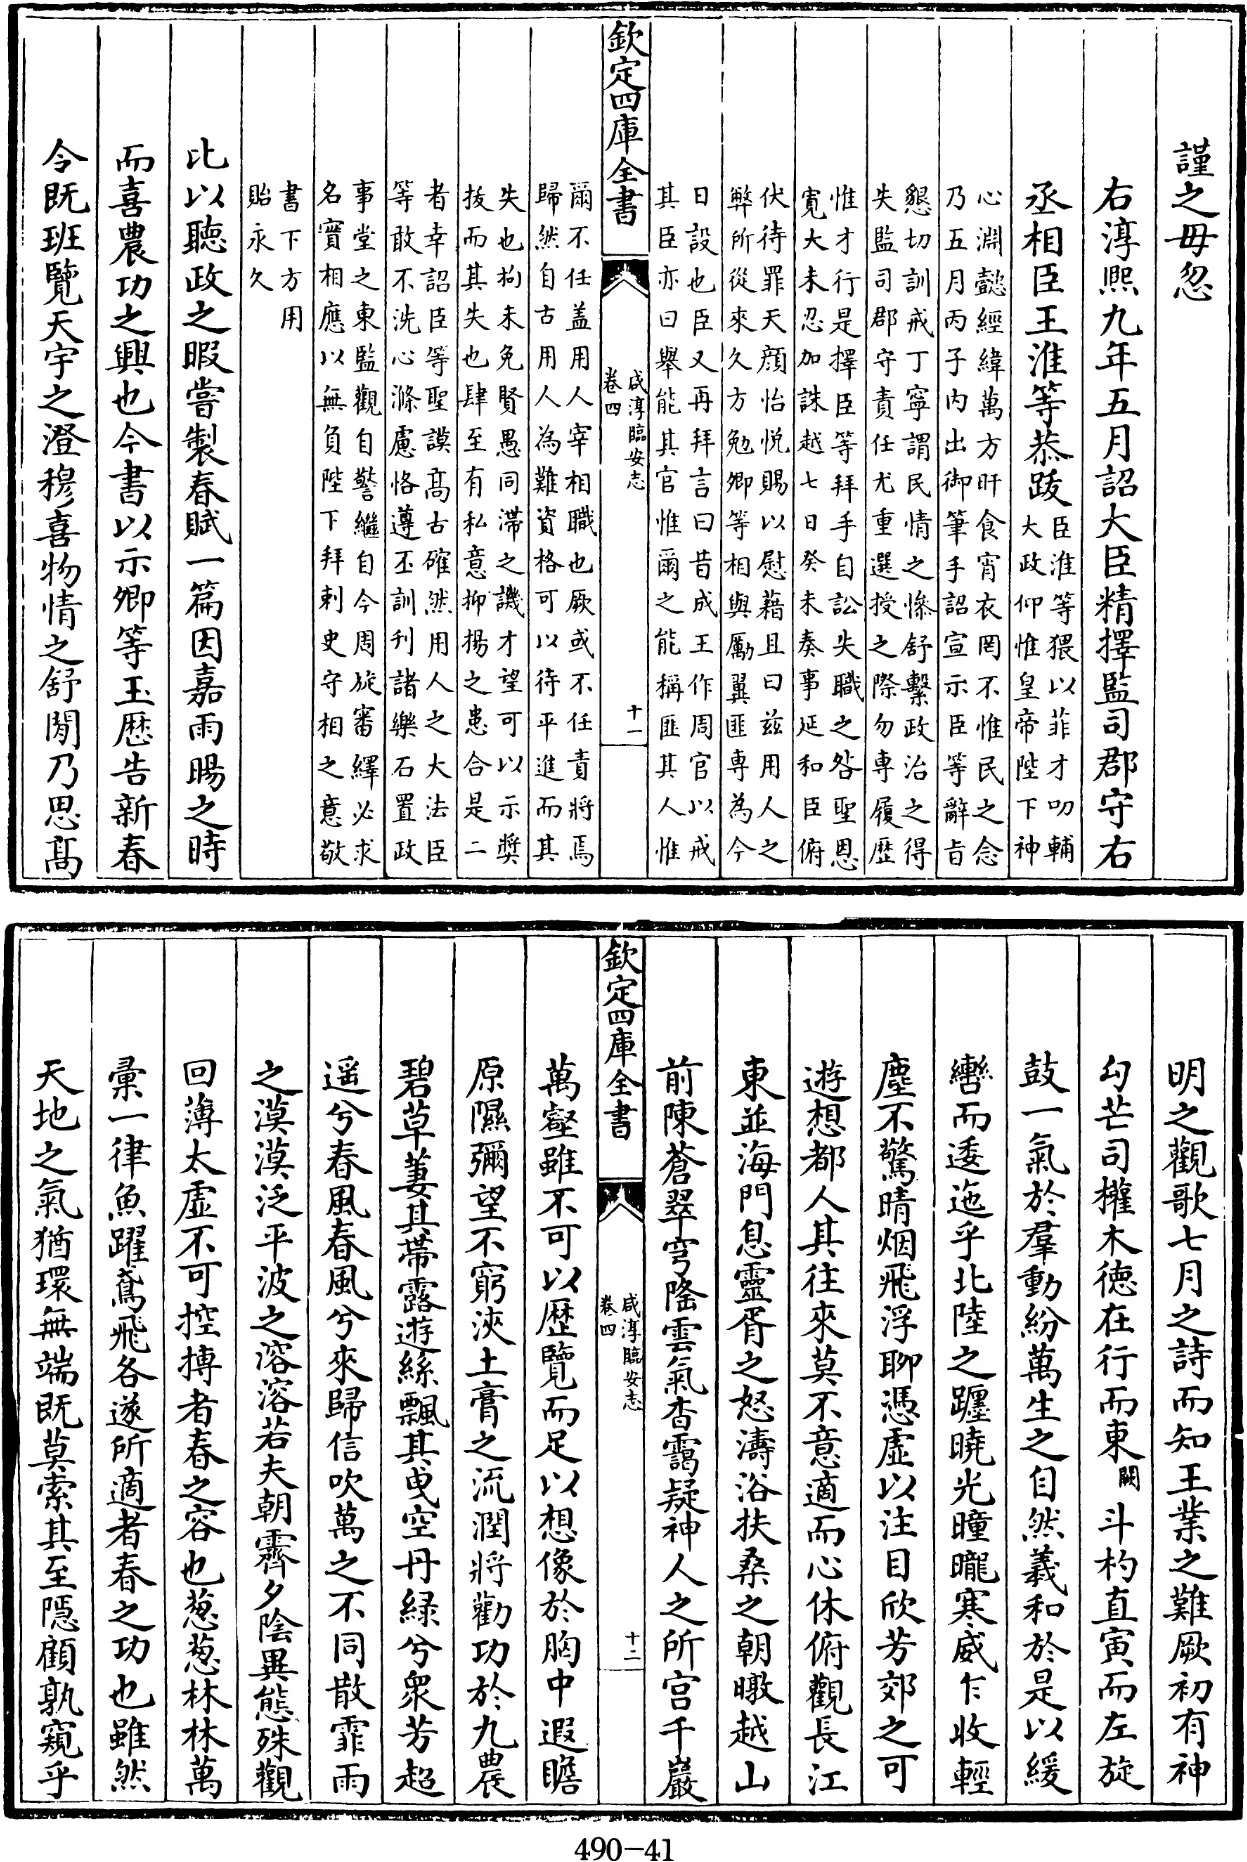 謹之毋忽
右淳熙九年五月詔大臣精擇監司郡守右
丞相臣王淮等恭跋
臣淮等猥以菲才叨輔
大政仰惟皇帝陛下神
心淵懿經緯萬方旰食宵衣罔不惟民之念
乃五月丙子内出御筆手詔宣示臣等辭旨
懇切訓戒丁寧謂民情之慘舒繫政治之得
失監司郡守責任尤重選授之際勿專履歴
惟才行是擇臣等拜手自訟失職之咎聖恩
寛大未忍加誅越七日癸未奏事延和臣俯
伏待罪天顔怡悦賜以慰藉且曰兹用人之
弊所從來久方勉卿等相與厲翼匪専為今
日設也臣又再拜言曰昔成王作周官以戒
其臣亦曰舉能其官惟爾之能稱匪其人惟
欽定四庫全書
咸淳臨安志
卷四
十一
爾不任盖用人宰相職也厥或不任責將焉
歸然自古用人為難資格可以待平進而其
失也拘未免賢愚同滯之譏才望可以示奬
拔而其失也肆至有私意抑揚之患合是二
者幸詔臣等聖謨髙古確然用人之大法臣
等敢不洗心滌慮恪遵丕訓刋諸樂石置政
事堂之東監觀自警繼自今周旋審繹必求
名實相應以無負陛下拜剌史守相之意敬
書下方用
貽永久
比以聽政之暇嘗製春賦一篇因嘉雨暘之時
而喜農功之興也今書以示卿等玉歴告新春
令既班覽天宇之澄穆喜物情之舒閒乃思髙
明之觀歌七月之詩而知王業之難厥初有神
勾芒司權木徳在行而東
闕
斗杓直寅而左旋
鼓一氣於羣動紛萬生之自然羲和於是以緩
轡而逶迤乎北陸之躔曉光曈曨寒威乍收輕
塵不驚晴烟飛浮聊憑虚以注目欣芳郊之可
遊想都人其往來莫不意適而心休俯觀長江
東並海門息靈胥之怒濤浴扶桑之朝暾越山
前陳蒼翠穹隆雲氣杳靄疑神人之所宫千巖
欽定四庫全書
咸淳臨安志
卷四
十二
萬壑雖不可以歴覽而足以想像於胸中遐瞻
原隰彌望不窮浹土膏之流潤將勸功於九農
碧草萋其帶露遊絲飄其曵空丹緑兮衆芳超
遥兮春風春風兮來歸信吹萬之不同散霏雨
之漠漠泛平波之溶溶若夫朝霽夕陰異態殊觀
回薄太虚不可控摶者春之容也葱葱林林萬
彚一律魚躍鳶飛各遂所適者春之功也雖然
天地之氣猶環無端既莫索其至隱顧孰窺乎
490-41